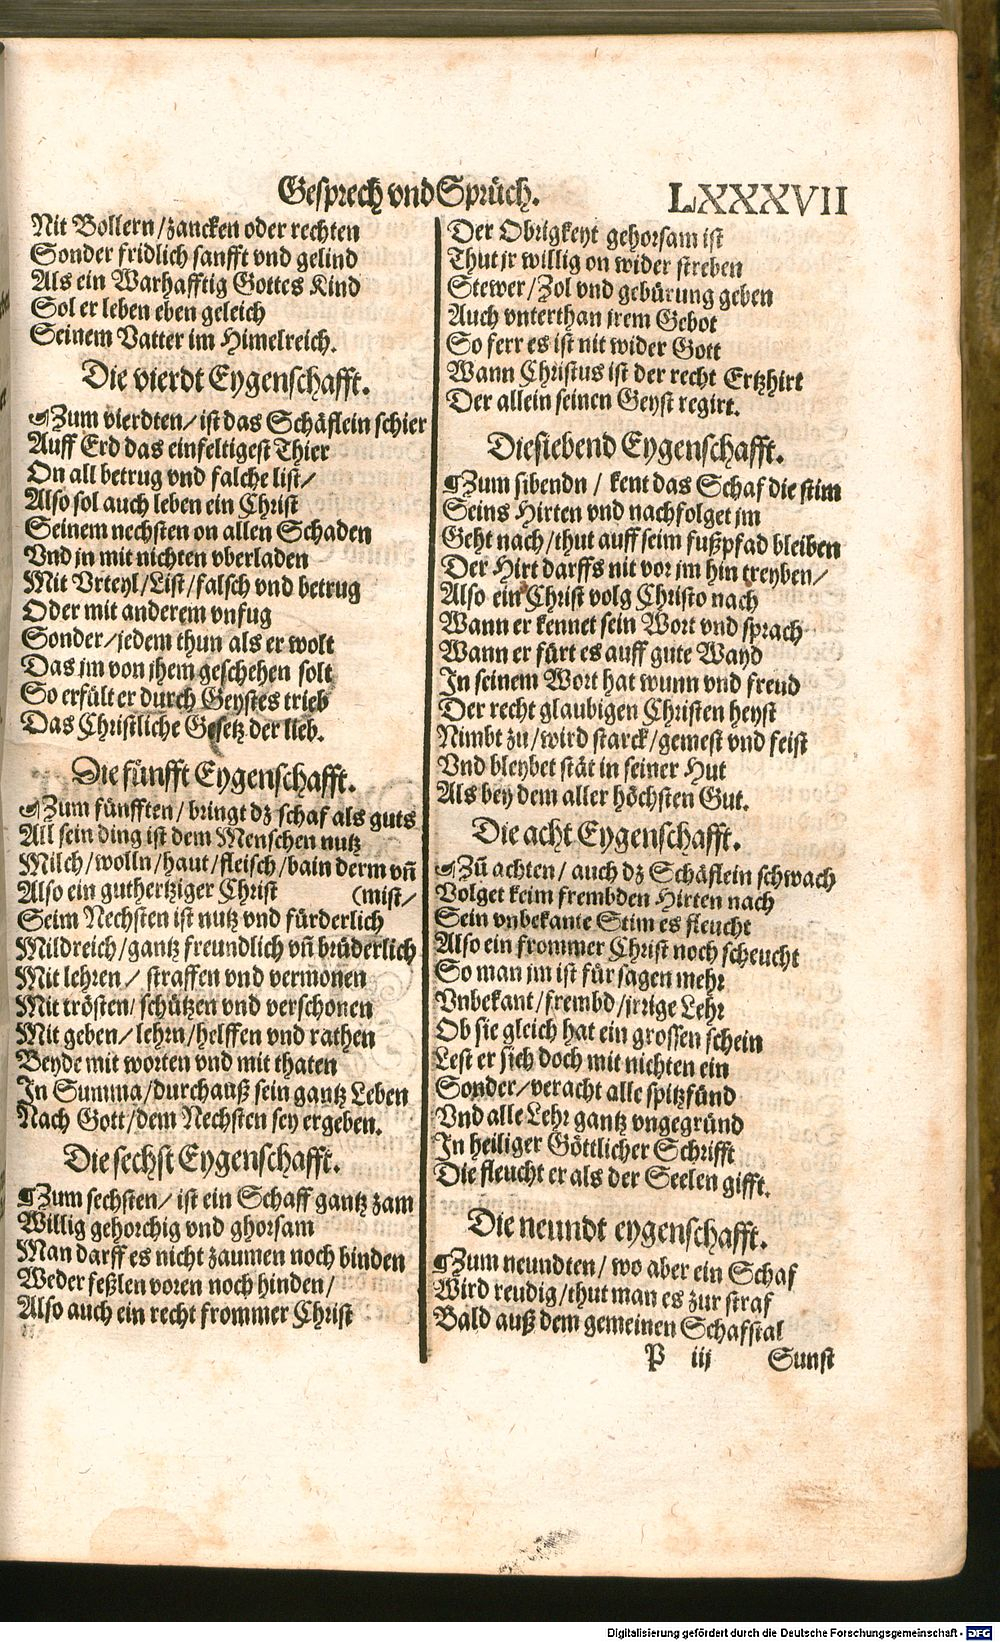 Gesprech vnd Sprüch. LXXXVII
Nit Bollern/zancken oder rechten
Sonder fridlich sanfft vnd gelind
Als ein Warhafftig Gottes Kind
Sol er leben eben geleich
Seinem Vatter im Himelreich.
Die vierdt Eygenschafft.
Zum vierdten/ ist das Schäflein schier
Auff Erd das einfeltigest Thier
On all betrug vnd falche list/
Also sol auch leben ein Christ
Seinem nechsten on allen Schaden
Vnd jn mit nichten vberladen
Mit Vrteyl/List/falsch vnd betrug
Oder mit anderem vnfug
Sonder/jedem thun als er wolt
Das jm von jhem geschehen solt
So erfült er durch Geystes trieb
Das Christliche Gesetz der lieb.
Die fünfft Eygenschafft.
Zum fünfften/ bringt dz schaf als guts
All sein ding ist dem Menschen nutz
Milch/wolln/haut/fleisch/bain derm vñ
Also ein guthertziger Christ (mist/
Seim Nechsten ist nutz vnd fürderlich
Mildreich/gantz freundlich vñ brüderlich
Mit lehren/ straffen vnd vermonen
Mit trösten/ schützen vnd verschonen
Mit geben/ lehrn/helffen vnd rathen
Beyde mit worten vnd mit thaten
In Summa/durchauß sein gantz Leben
Nach Gott/dem Nechsten sey ergeben.
Die sechst Eygenschafft.
Zum sechsten/ ist ein Schaff gantz zam
Willig gehorchig vnd ghorsam
Man darff es nicht zaumen noch binden
Weder feßlen voren noch hinden/
Also auch ein recht frommer Christ
Der Obrigkeyt gehorsam ist
Thut jr willig on wider streben
Stewer/Zol vnd gebürung geben
Auch vnterthan jrem Gebot
So ferr es ist nit wider Gott
Wann Christus ist der recht Ertzhirt
Der allein seinen Geyst regirt.
Die siebend Eygenschafft.
Zum sibendn / kent das Schaf die stim
Seins Hirten vnd nachfolget jm
Geht nach/thut auff seim fußpfad bleiben
Der Hirt darffs nit vor jm hin treyben/
Also ein Christ volg Christo nach
Wann er kennet sein Wort vnd sprach
Wann er fürt es auff gute Wayd
In seinem Wort hat wunn vnd freud
Der recht glaubigen Christen heyst
Nimbt zu/wird starck/gemest vnd feist
Vnd bleybet stät in seiner Hut
Als bey dem aller höchsten Gut.
Die acht Eygenschafft.
Zů achten/ auch dz Schäflein schwach
Volget keim frembden Hirten nach
Sein vnbekante Stim es fleucht
Also ein frommer Christ noch scheucht
So man jm ist für sagen mehr
Vnbekant/frembd/jrrige Lehr
Ob sie gleich hat ein grossen schein
Lest er sich doch mit nichten ein
Sonder/veracht alle spitzfünd
Vnd alle Lehr gantz vngegründ
In heiliger Göttlicher Schrifft
Die fleucht er als der Seelen gifft.
Die neundt eygenschafft.
Zum neundten/ wo aber ein Schaf
Wird reudig/thut man es zur straf
Bald auß dem gemeinen Schafstal
P iij Sunst
Digitalisierung gefördert durch die Deutsche Forschungsgemeinschaft - DFG